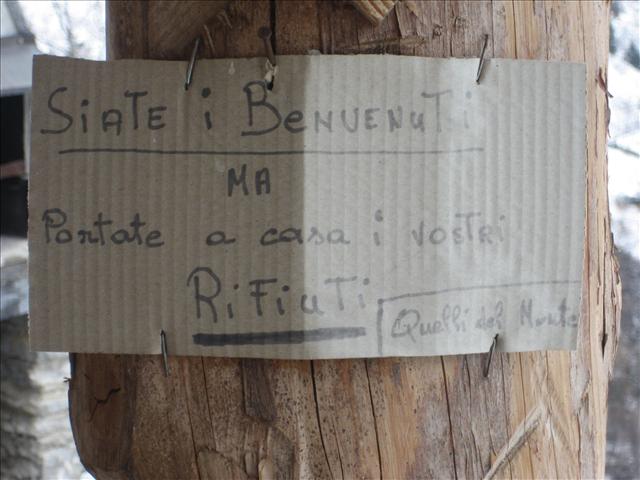 SiATE i BENVENUTi
MA
Portate a casa i vostri
RiFiuTi
Quelli del Monte